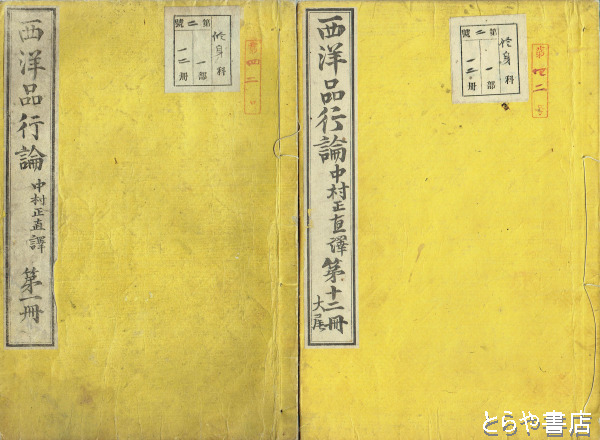 西洋品行論 中村正直譯 第一冊
修身科
第二號
一部
一二冊
第四二号
西洋品行論 中村正直譯 第十二冊 大尾
修身科
第二號
一部
一二冊
第四二号
とらや書店